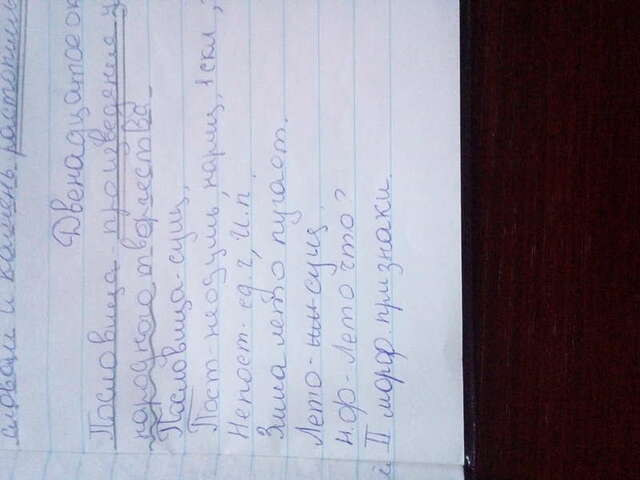 словом и камень растопишь
Двенадцатое ок
Пословица произведение у
народного творчества
Пословица-сущ,
Пост-неодуш, нариц, 1скл,
Непост- ед.ч, И.п.
Зима лето пугает.
Лето- сущ.
Н.ф- Лето что?
II морф. признаки.